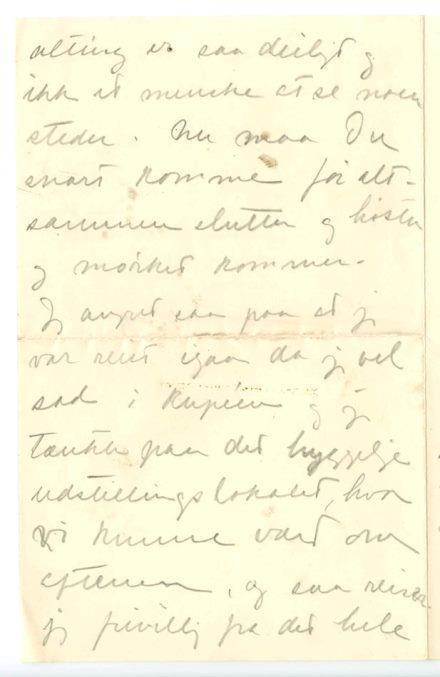 alting er saa deiligt og
ikke et menske at se noen
steder. Nu maa Du
snart komme før alt-
sammen slutter og høsten
og mørket kommer.
Jeg angret saa paa at jeg
var reist igaar da jeg vel
sad i kupeen og jeg
tænkte paa det hyggelige
udstillingslokalet, hvor
vi kunne vært om
eftenen, og saa reiser
jeg frivillig fra det hele